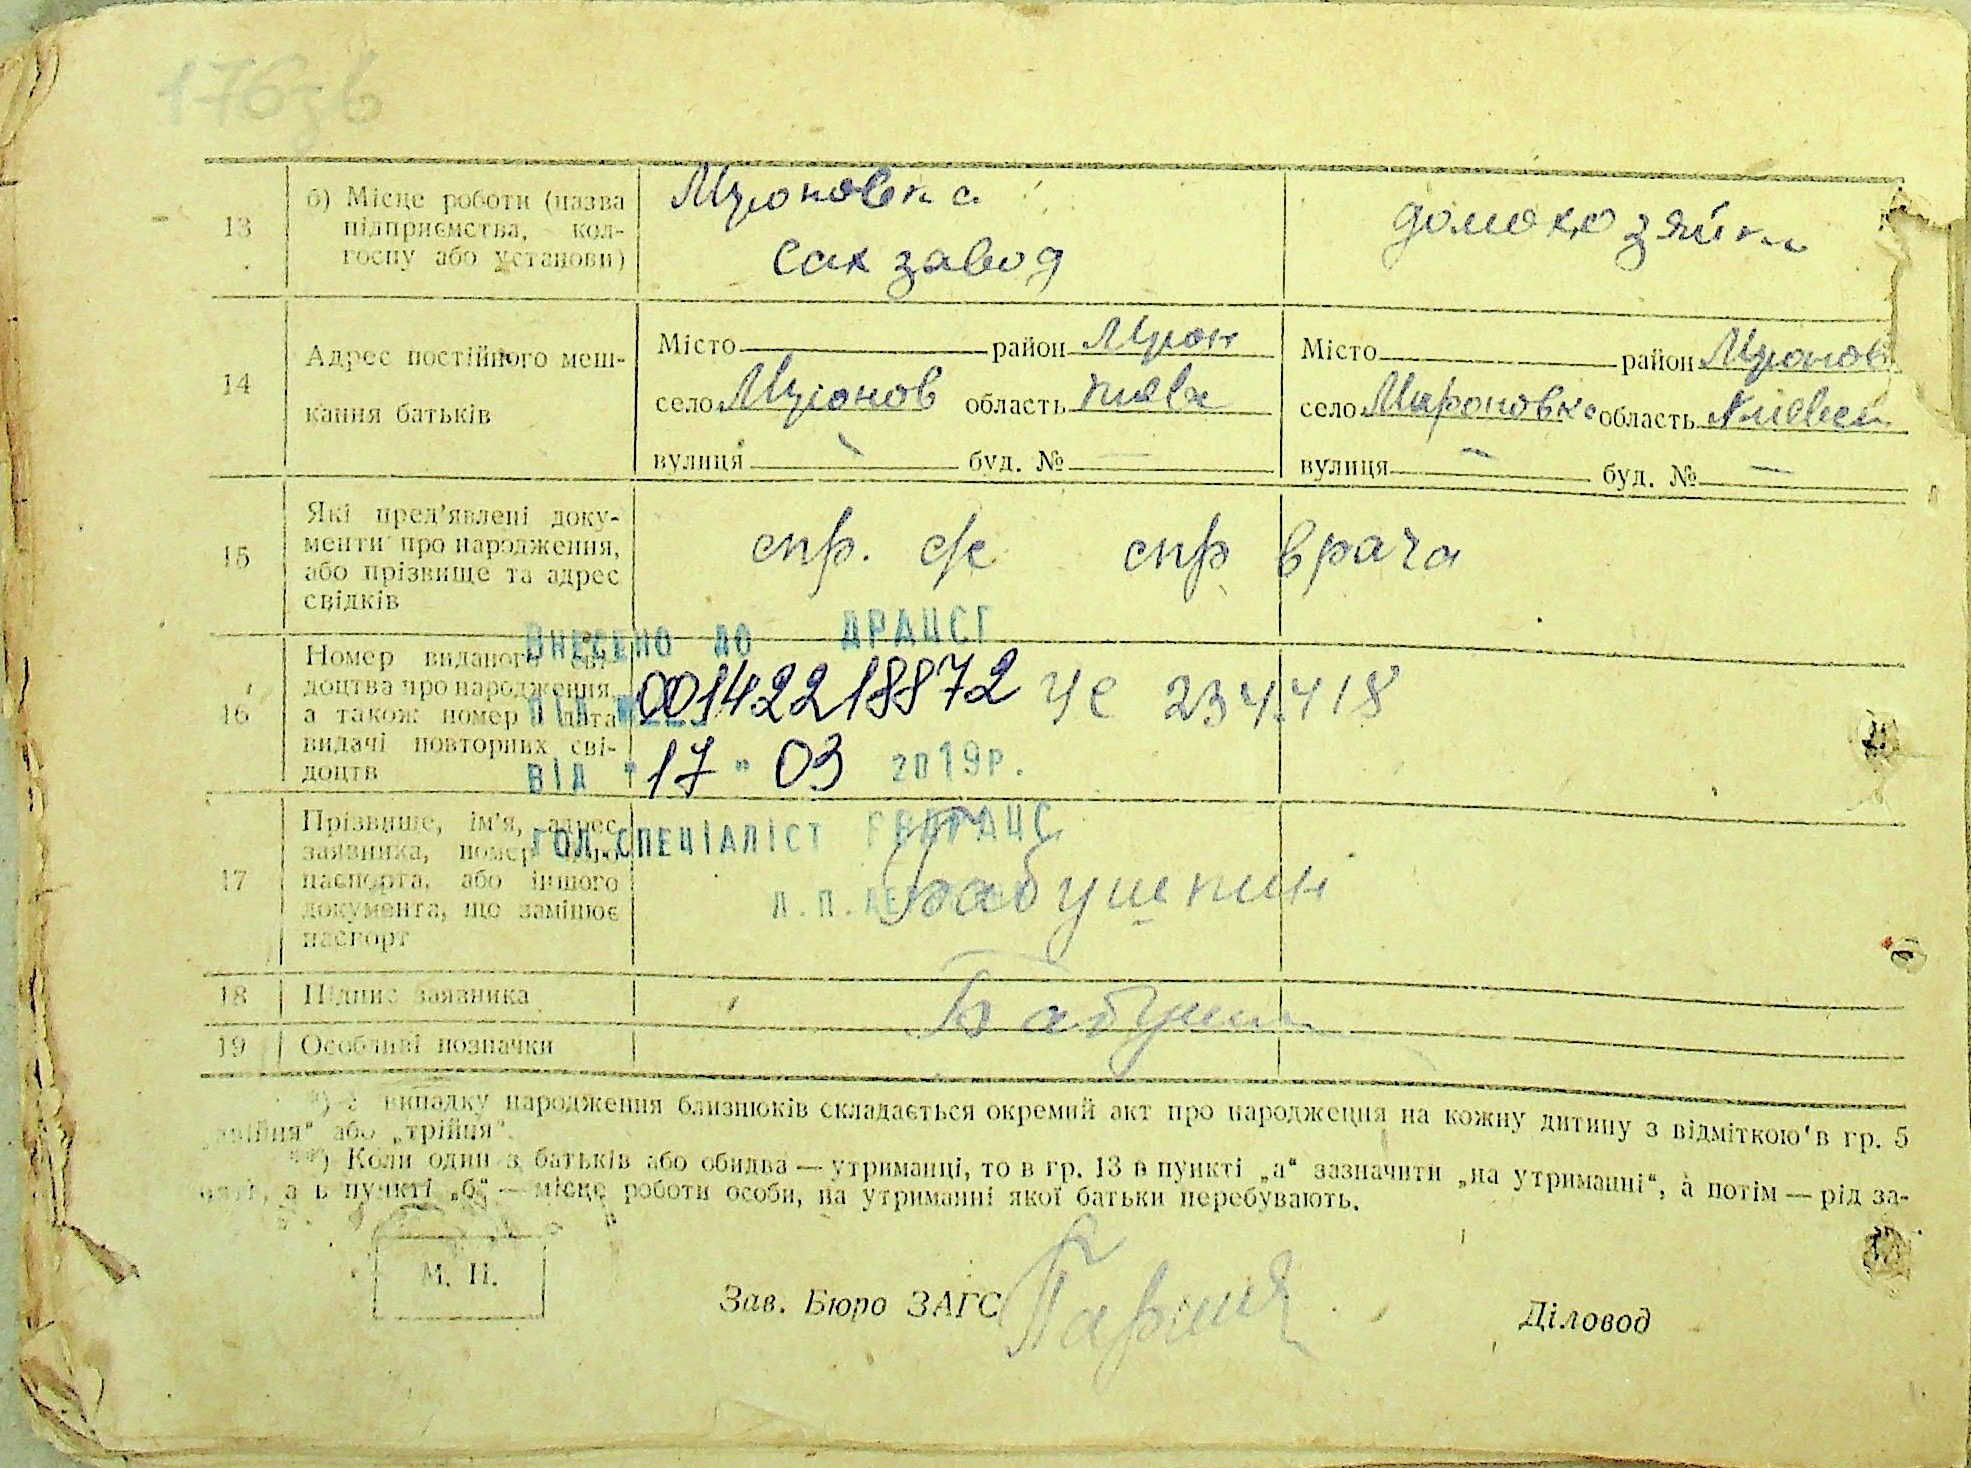 176зв
13
б) Місце роботи (назва
підприємства, кол-
госпу або установи)
Мироновка
Сах завод
домохозяйка
14
Адрес постійного меш-
кання батьків
Місто район Мирон
село Миронов область Киевск
вулиця — буд. № —
Місто район Миронов
село Мироновка область Киевск
вулиця — буд. № —
15
Які пред'явлені доку-
менти про народження,
або прізвище та адрес
свідків
спр. с/с спр врача
16
Номер виданого сві-
доцтва про народження,
а також номер і дата
видачі повторних сві-
доцтв
ВНЕСЕНО ДО ДРАЦСГ
00142218872
ВІД "17" 03 2019р.
ГОЛ.СПЕЦІАЛІСТ
Л.П.
ЧС 234418
17
Прізвище, ім'я, адрес
заявника, номер його
паспорта, або іншого
документа, що заміщює
паспорт
Бабушкин
18
Підпис заявника
Бабушк
19
Особливі позначки
*) У випадку народження близнюків складається окремий акт про народження на кожну дитину з відміткою в гр. 5
„двійня" або „трійня".
**) Коли один з батьків або обидва — утриманці, то в гр. 13 в пункті „а" зазначити „на утриманні", а потім — рід за-
а в пункті „б" — місце роботи особи, на утриманні якої батьки перебувають.
М. П.
Зав. Бюро ЗАГС
Діловод